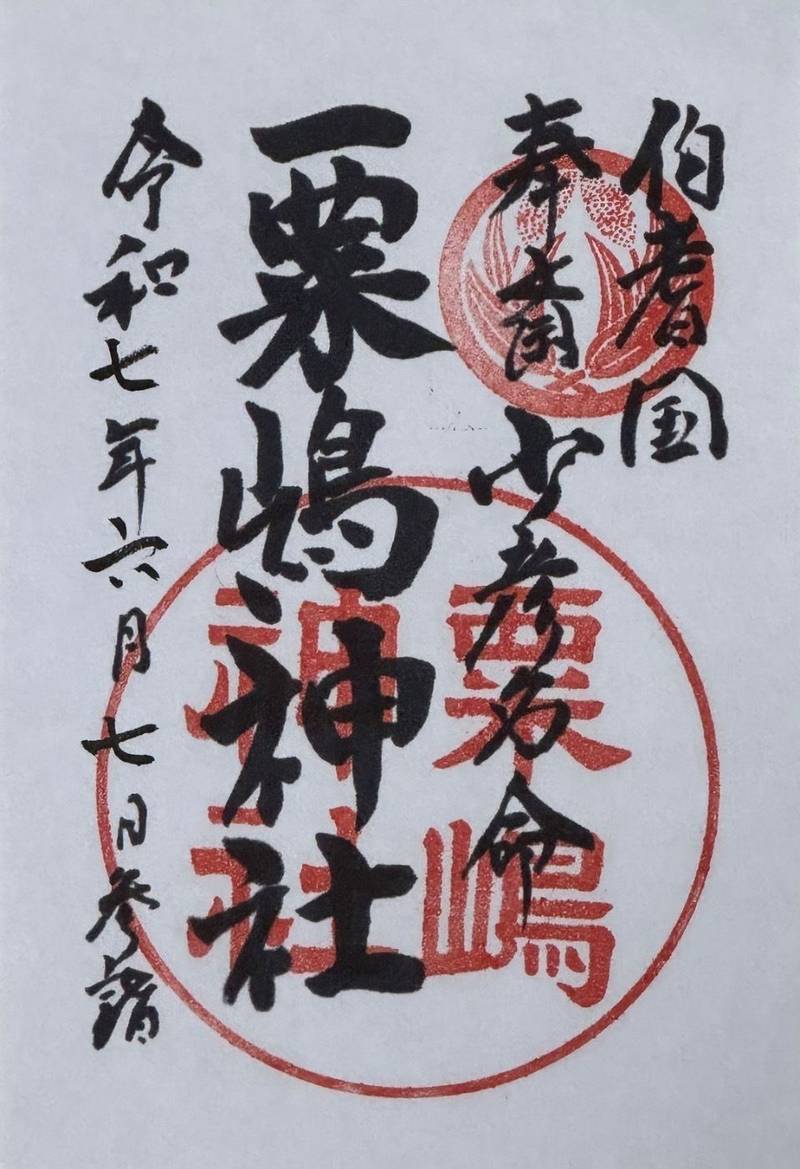 伯耆国
奉斎 少彦名命
粟嶋神社
令和七年六月七日参詣
粟嶋
神社